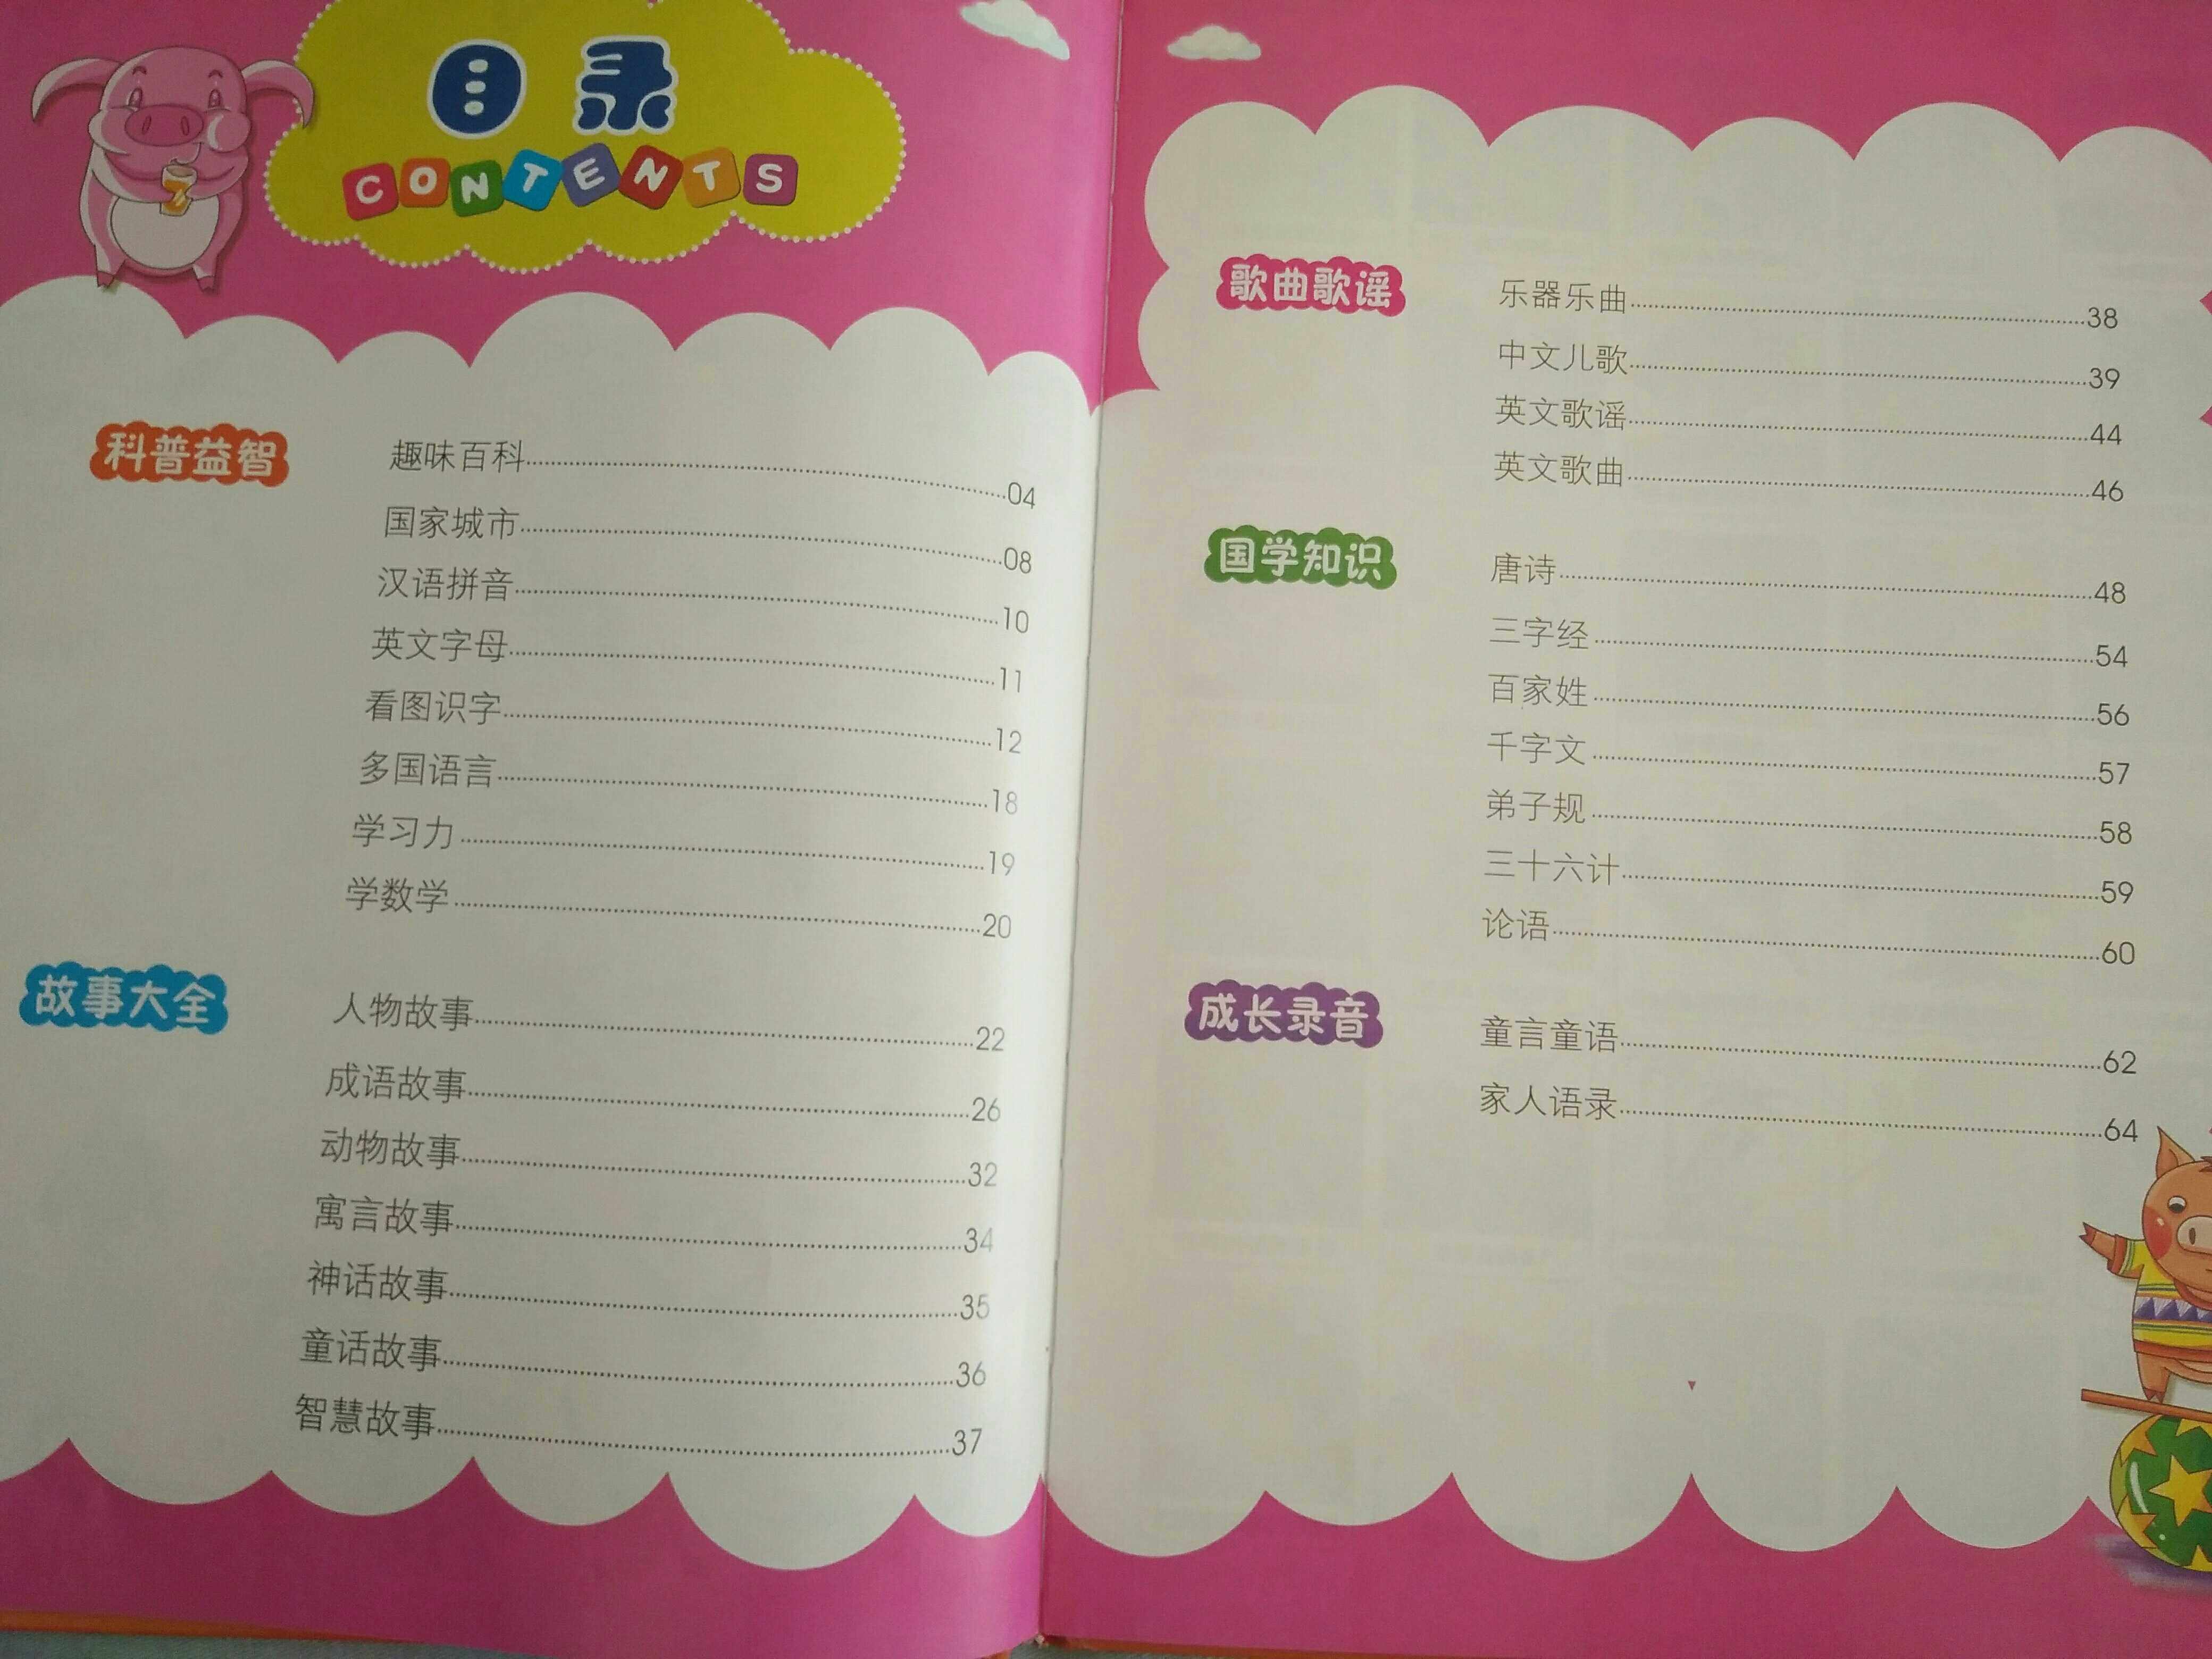 目录
CONTENTS
科普益智
趣味百科 04
国家城市 08
汉语拼音 10
英文字母 11
看图识字 12
多国语言 18
学习力 19
学数学 20
故事大全
人物故事 22
成语故事 26
动物故事 32
寓言故事 34
神话故事 35
童话故事 36
智慧故事 37
歌曲歌谣
乐器乐曲 38
中文儿歌 39
英文歌谣 44
英文歌曲 46
国学知识
唐诗 48
三字经 54
百家姓 56
千字文 57
弟子规 58
三十六计 59
论语 60
成长录音
童言童语 62
家人语录 64